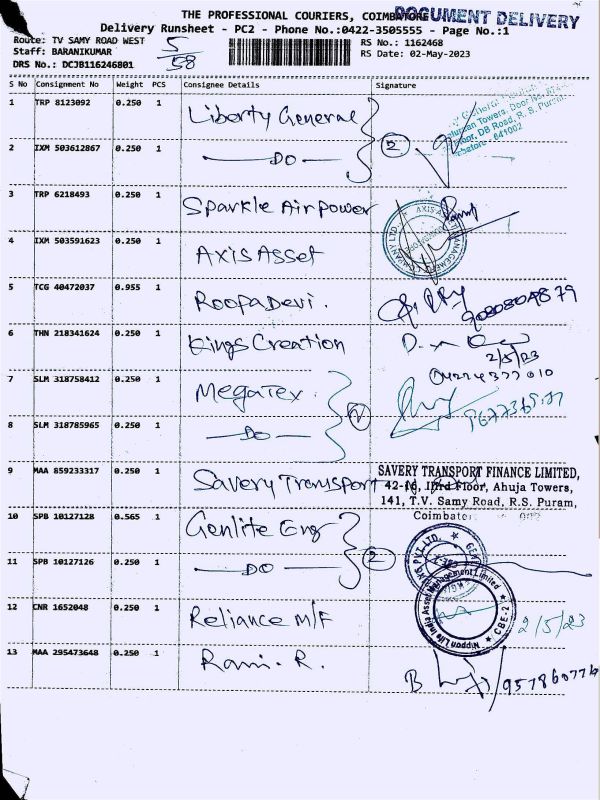 THE PROFESSIONAL COURIERS, COIMBATORE
DOCUMENT DELIVERY
Delivery Runsheet - PC2 - Phone No.:0422-3505555 - Page No.:1
Route: TV SAMY ROAD WEST
5/58
RS No.: 1162468
Staff: BARANIKUMAR
RS Date: 02-May-2023
DRS No.: DCJB116246801
S No Consignment No Weight PCS Consignee Details Signature
1 TRP 8123092 0.250 1 Liberty General
2 IXM 503612867 0.250 1 DO 2
3 TRP 6218493 0.250 1 Sparkle Airpower
4 IXM 503591623 0.250 1 Axis Asset
5 TCG 40472037 0.955 1 Roopa Devi.
6 THN 218341624 0.250 1 Kings Creation
2/5/23
7 SLM 318758412 0.250 1 MegaTex.
8 SLM 318785965 0.250 1 DO
9 MAA 859233317 0.250 1 Savery Transport
SAVERY TRANSPORT FINANCE LIMITED,
42-16, IIIrd Floor, Ahuja Towers,
141, T.V. Samy Road, R.S. Puram,
10 SPB 10127128 0.565 1 Genlite Eng
11 SPB 10127126 0.250 1 DO 2
12 CNR 1652048 0.250 1 Reliance M/F
Nippon Life India Asset Management Limited
CBE-2
2/5/23
13 MAA 295473648 0.250 1 Rani. R.